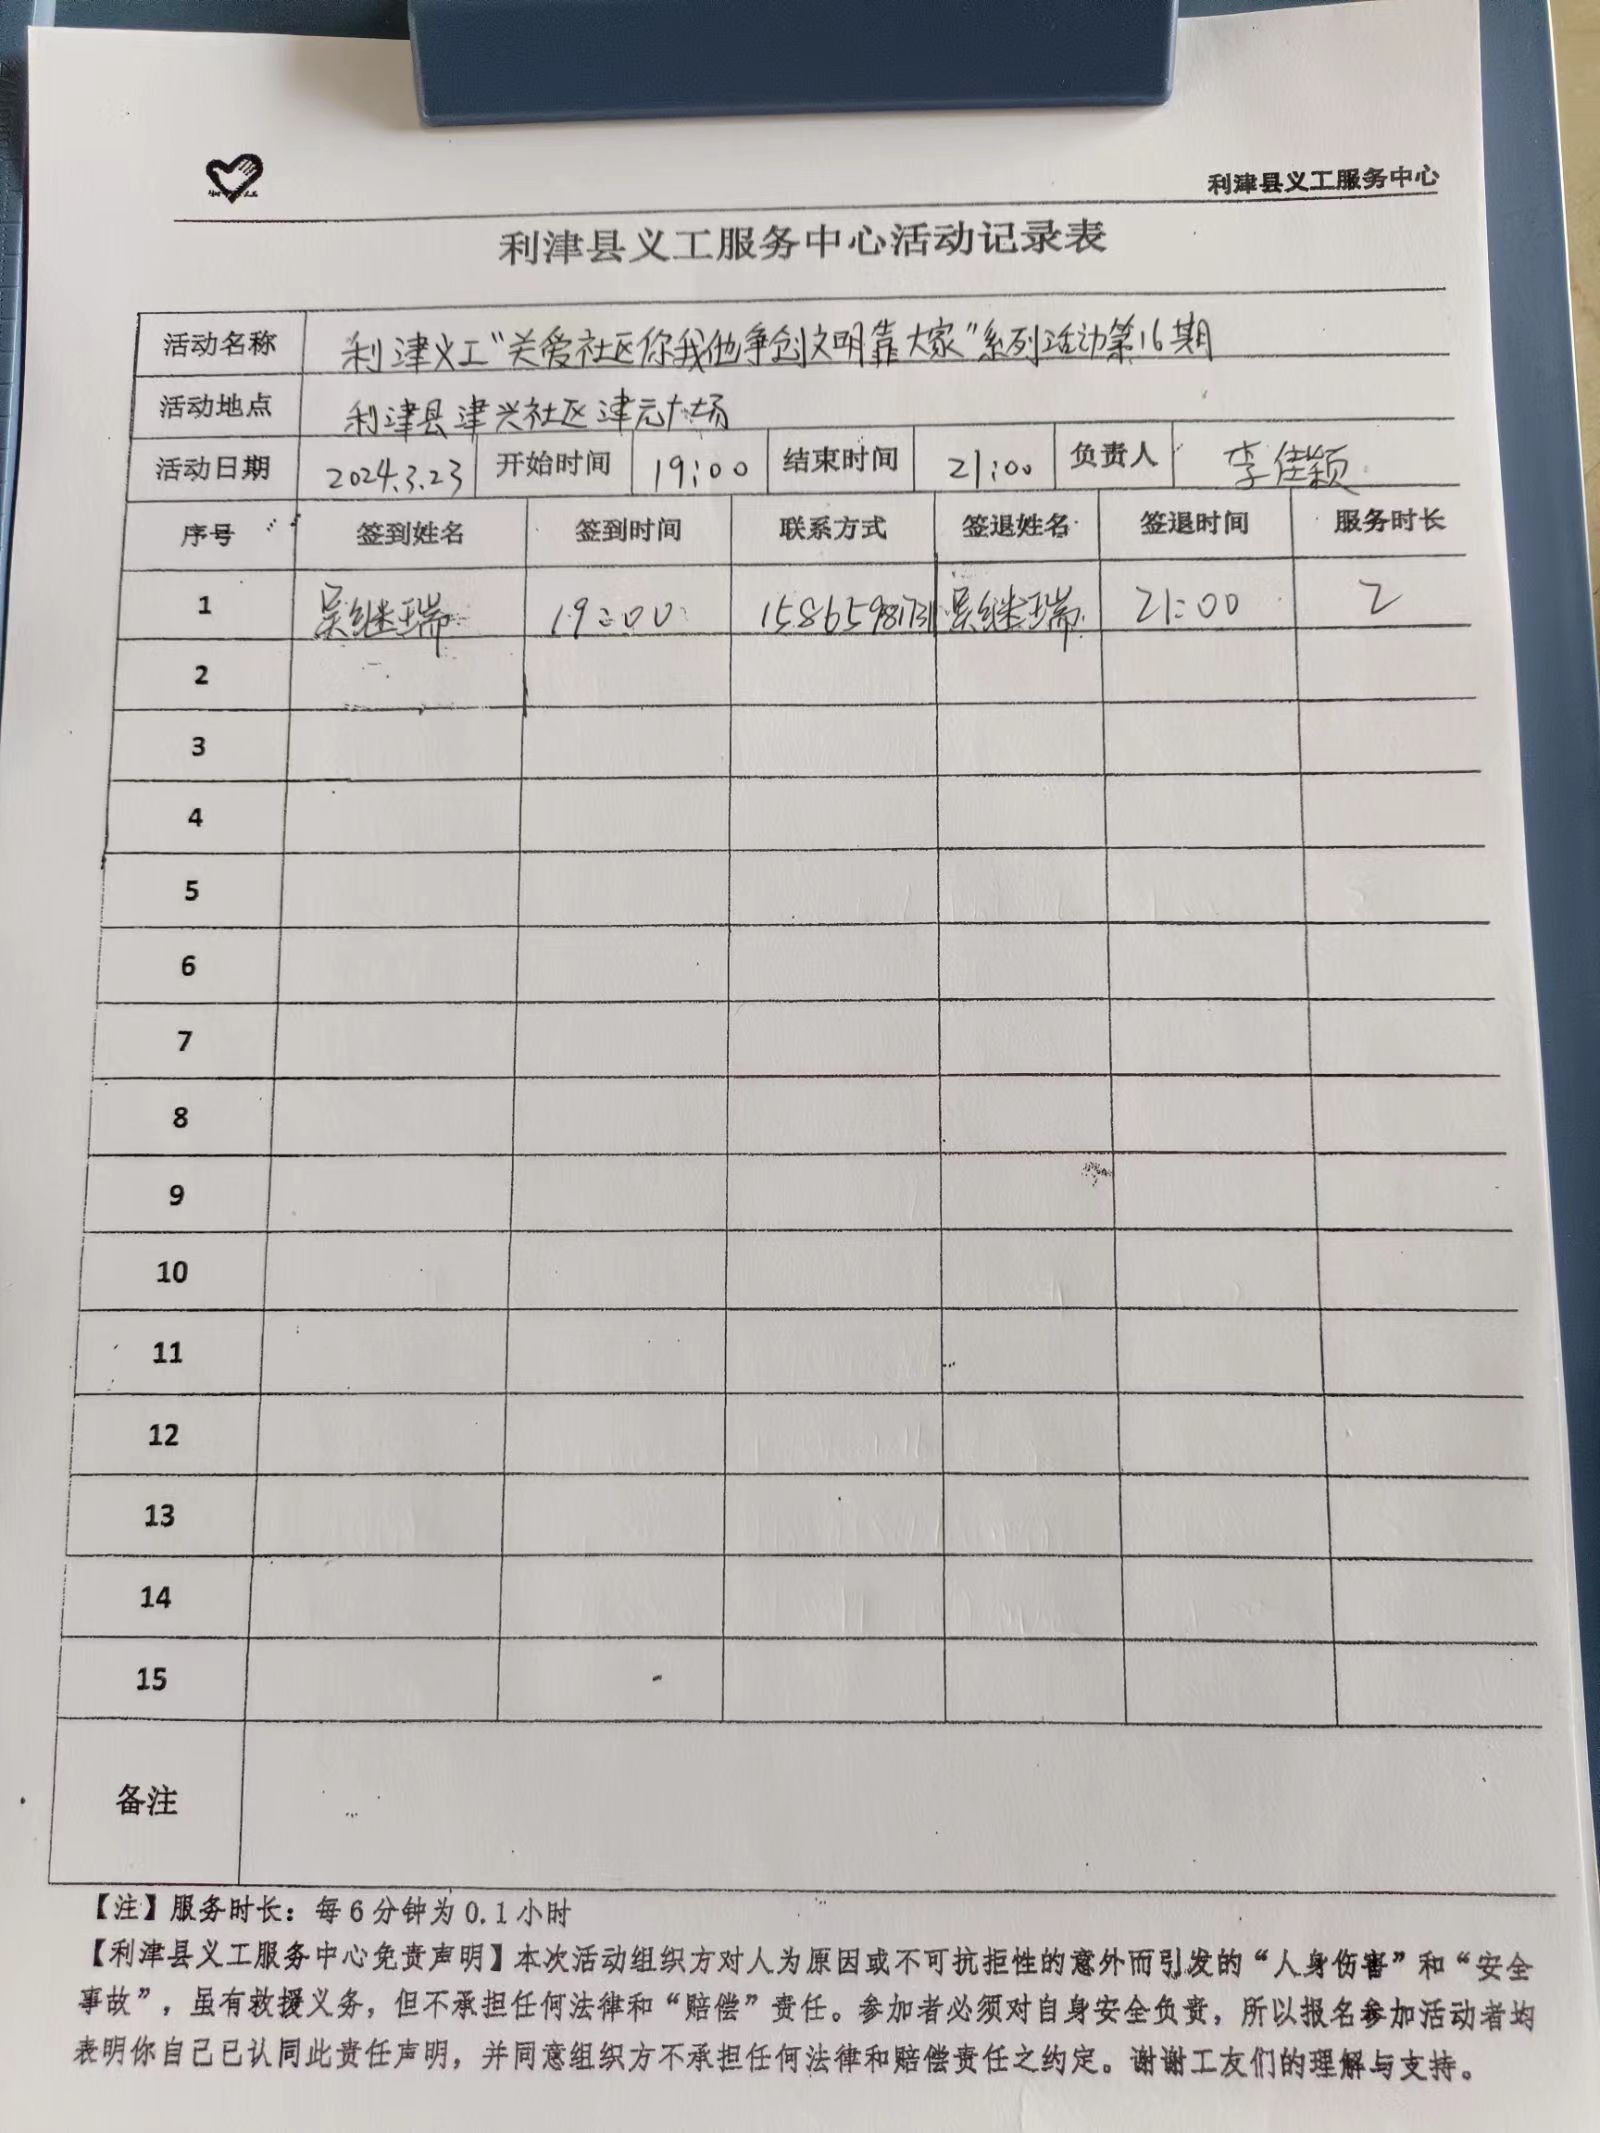 利津县义工服务中心
利津县义工服务中心活动记录表
活动名称 利津义工“关爱社区你我他争创文明靠大家”系列活动第16期
活动地点 利津县津兴社区津元广场
活动日期 2024.3.23 开始时间 19:00 结束时间 21:00 负责人 李佳颖
序号 签到姓名 签到时间 联系方式 签退姓名 签退时间 服务时长
1 吴继瑞 19:00 15865981731 吴继瑞 21:00 2
2
3
4
5
6
7
8
9
10
11
12
13
14
15
备注
【注】服务时长：每6分钟为0.1小时
【利津县义工服务中心免责声明】本次活动组织方对人为原因或不可抗拒性的意外而引发的“人身伤害”和“安全
事故”，虽有救援义务，但不承担任何法律和“赔偿”责任。参加者必须对自身安全负责，所以报名参加活动者均
表明你自己已认同此责任声明，并同意组织方不承担任何法律和赔偿责任之约定。谢谢工友们的理解与支持。